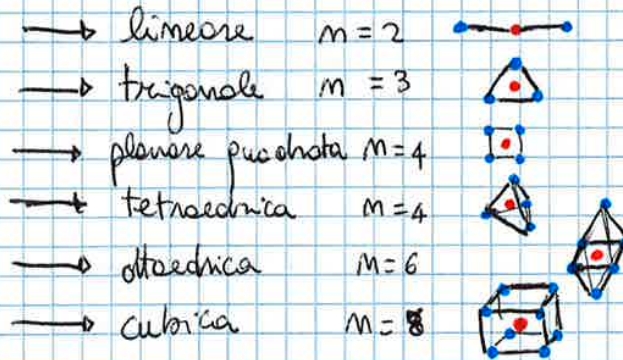 → lineare n = 2
→ trigonale n = 3
→ planare quadrata n = 4
→ tetraedrica n = 4
→ ottaedrica n = 6
→ cubica n = 8